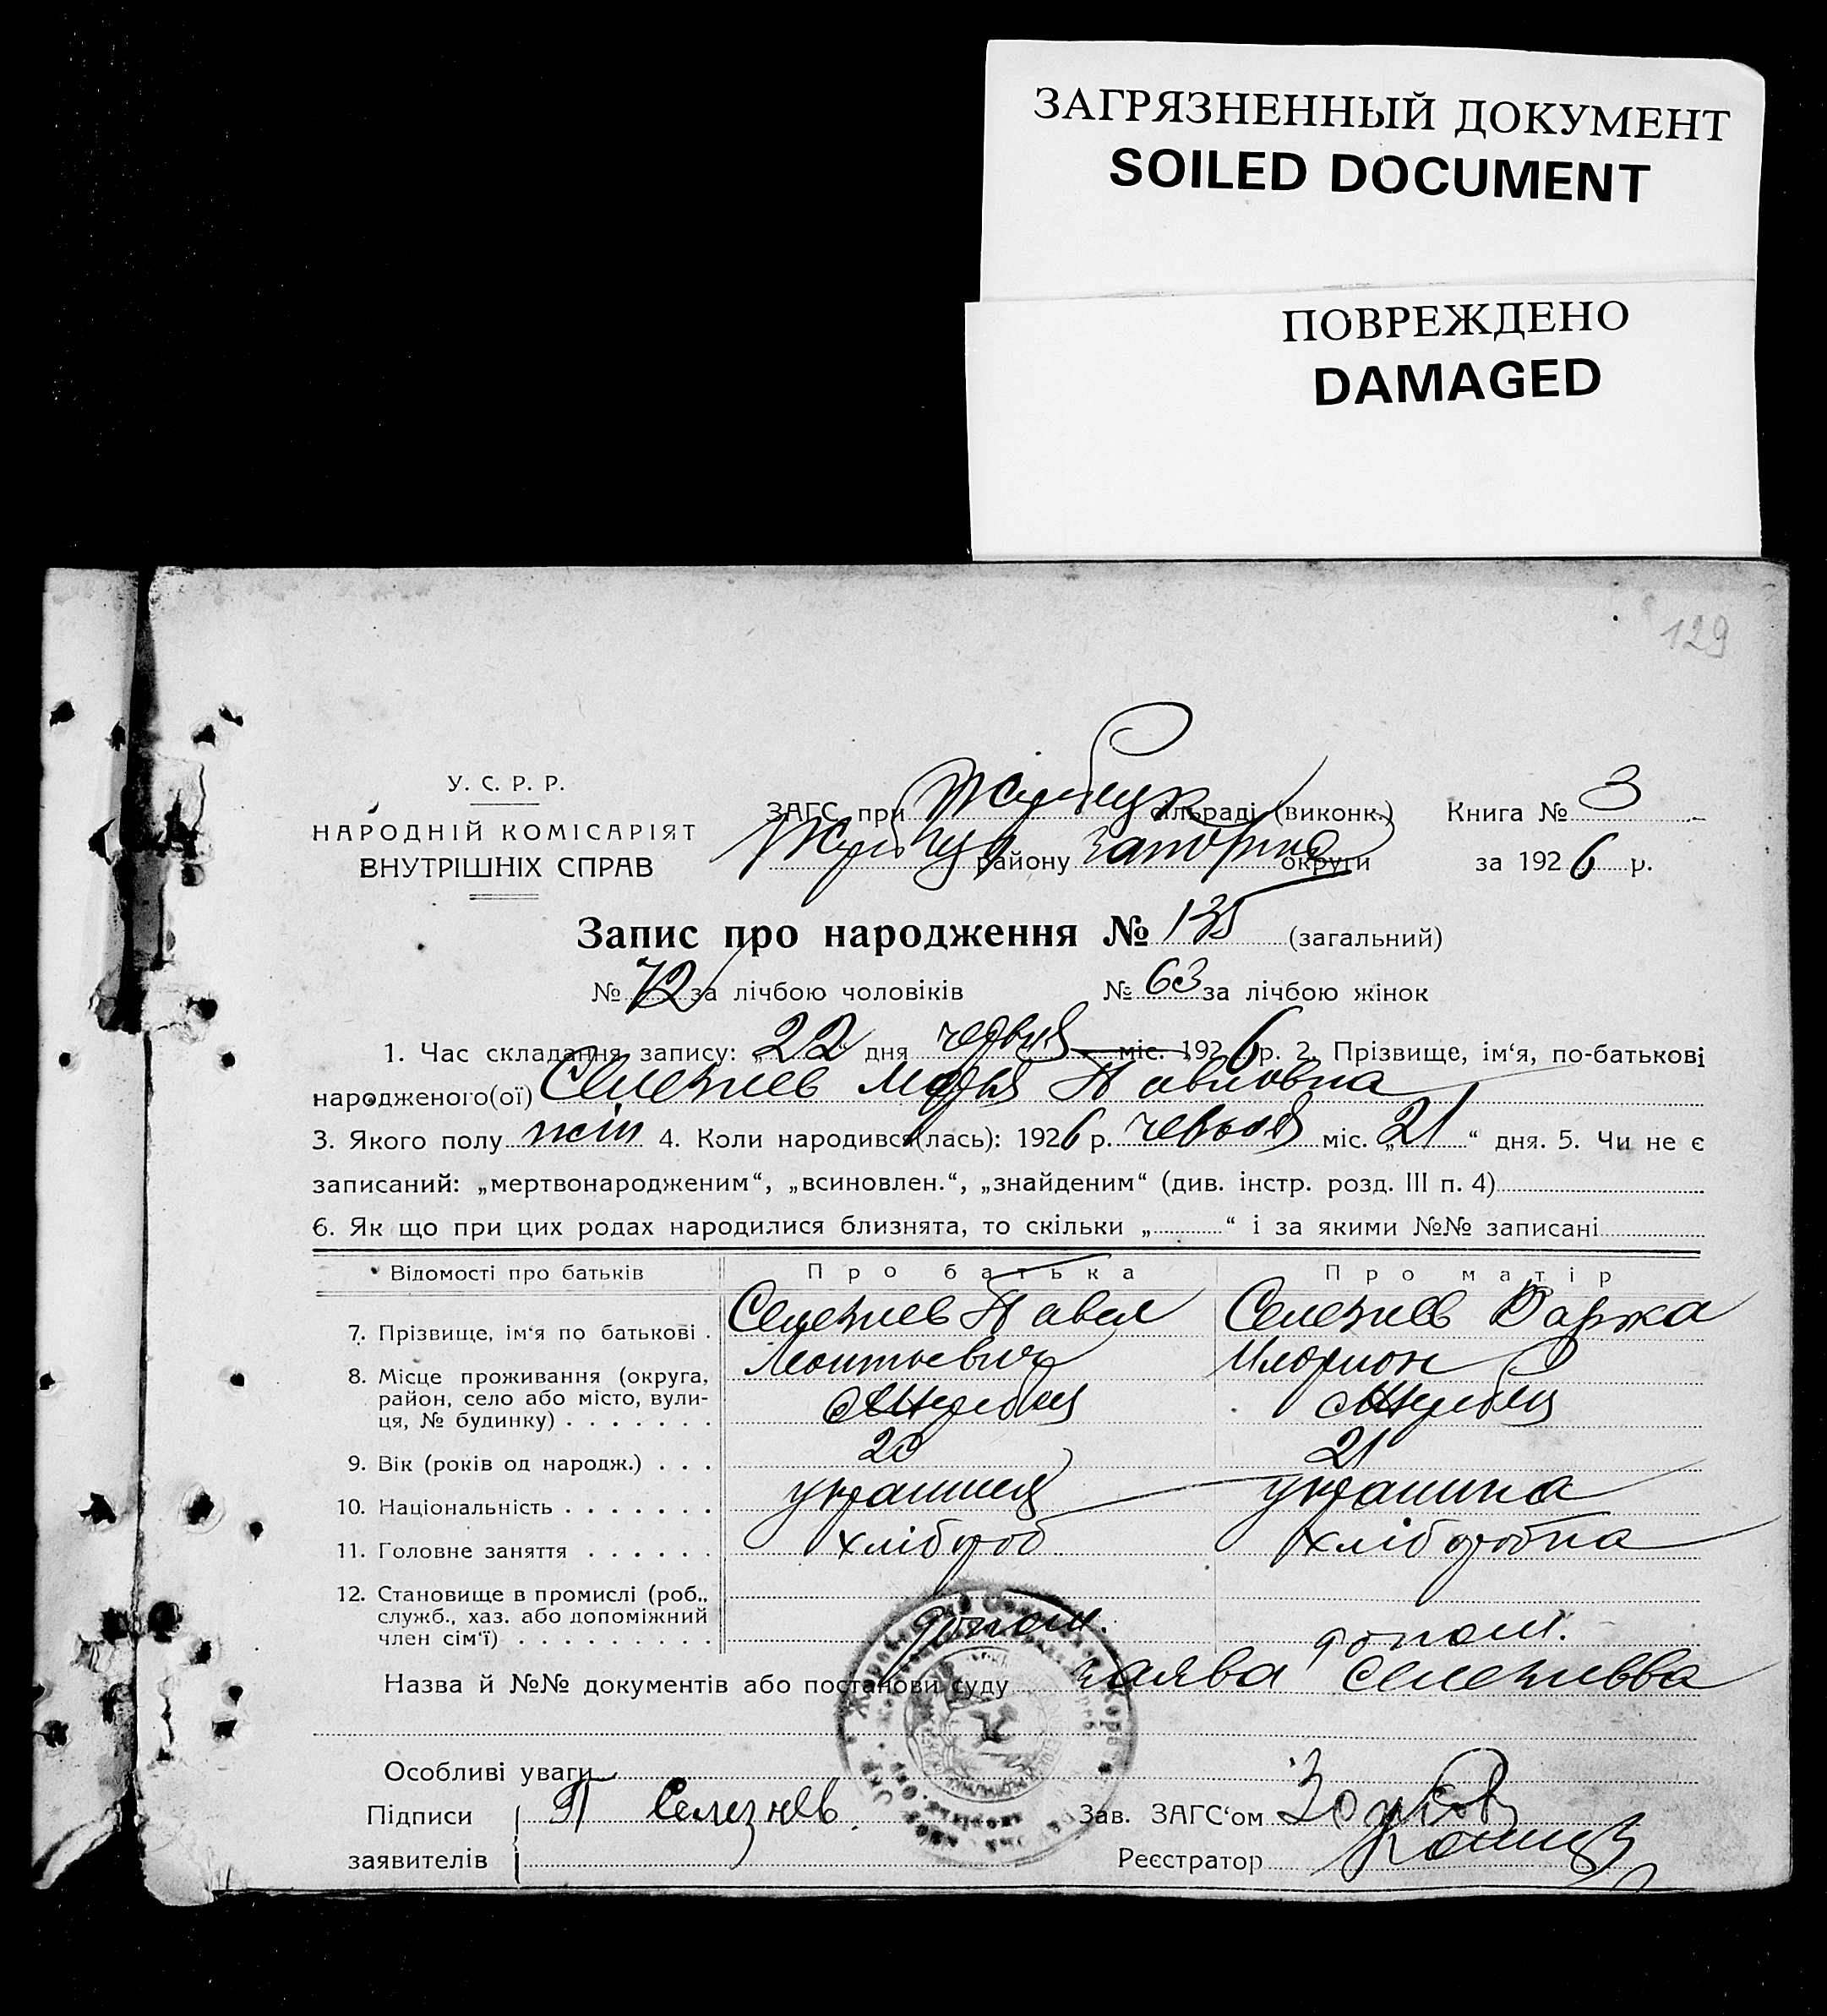 ЗАГРЯЗНЕННЫЙ ДОКУМЕНТ
SOILED DOCUMENT
ПОВРЕЖДЕНО
DAMAGED
129
У. С. Р. Р.
НАРОДНІЙ КОМІСАРІЯТ
ВНУТРІШНІХ СПРАВ
ЗАГС при сільраді (виконк.) Книга № 3
району округи за 1926 р.
Запис про народження № 135 (загальний)
№ 72 за лічбою чоловіків № 63 за лічбою жінок
1. Час складання запису: „22“ дня червня міс. 1926 р. 2. Прізвище, ім‘я, по-батькові
народженого(ої) Селезнев Марья Павловна
3. Якого полу жін 4. Коли народився(лась): 1926 р. червня міс. „21“ дня. 5. Чи не є
записаний: „мертвонародженим“, „всиновлен.“, „знайденим“ (див. інстр. розд. III п. 4)
6. Як що при цих родах народилися близнята, то скільки „ “ і за якими №№ записані
Відомості про батьків Про батька Про матір
7. Прізвище, ім‘я по батькові . Селезнев Павел Леонтьевич Селезнев Дарка Иларион
8. Місце проживання (округа,
район, село або місто, вули-
ця, № будинку) . . . . . . . с Жеребец с Жеребец
9. Вік (років од народж.) . . . 20 21
10. Національність . . . . . . . украинец украинка
11. Головне заняття . . . . . . хлібороб хліборобка
12. Становище в промислі (роб.,
служб., хаз. або допоміжний
член сім‘ї) . . . . . . . . . допом. допом.
Назва й №№ документів або постанови суду заява Селезнева
Особливі уваги
Підписи П Селезнев. Зав. ЗАГС‘ом
заявителів Реєстратор